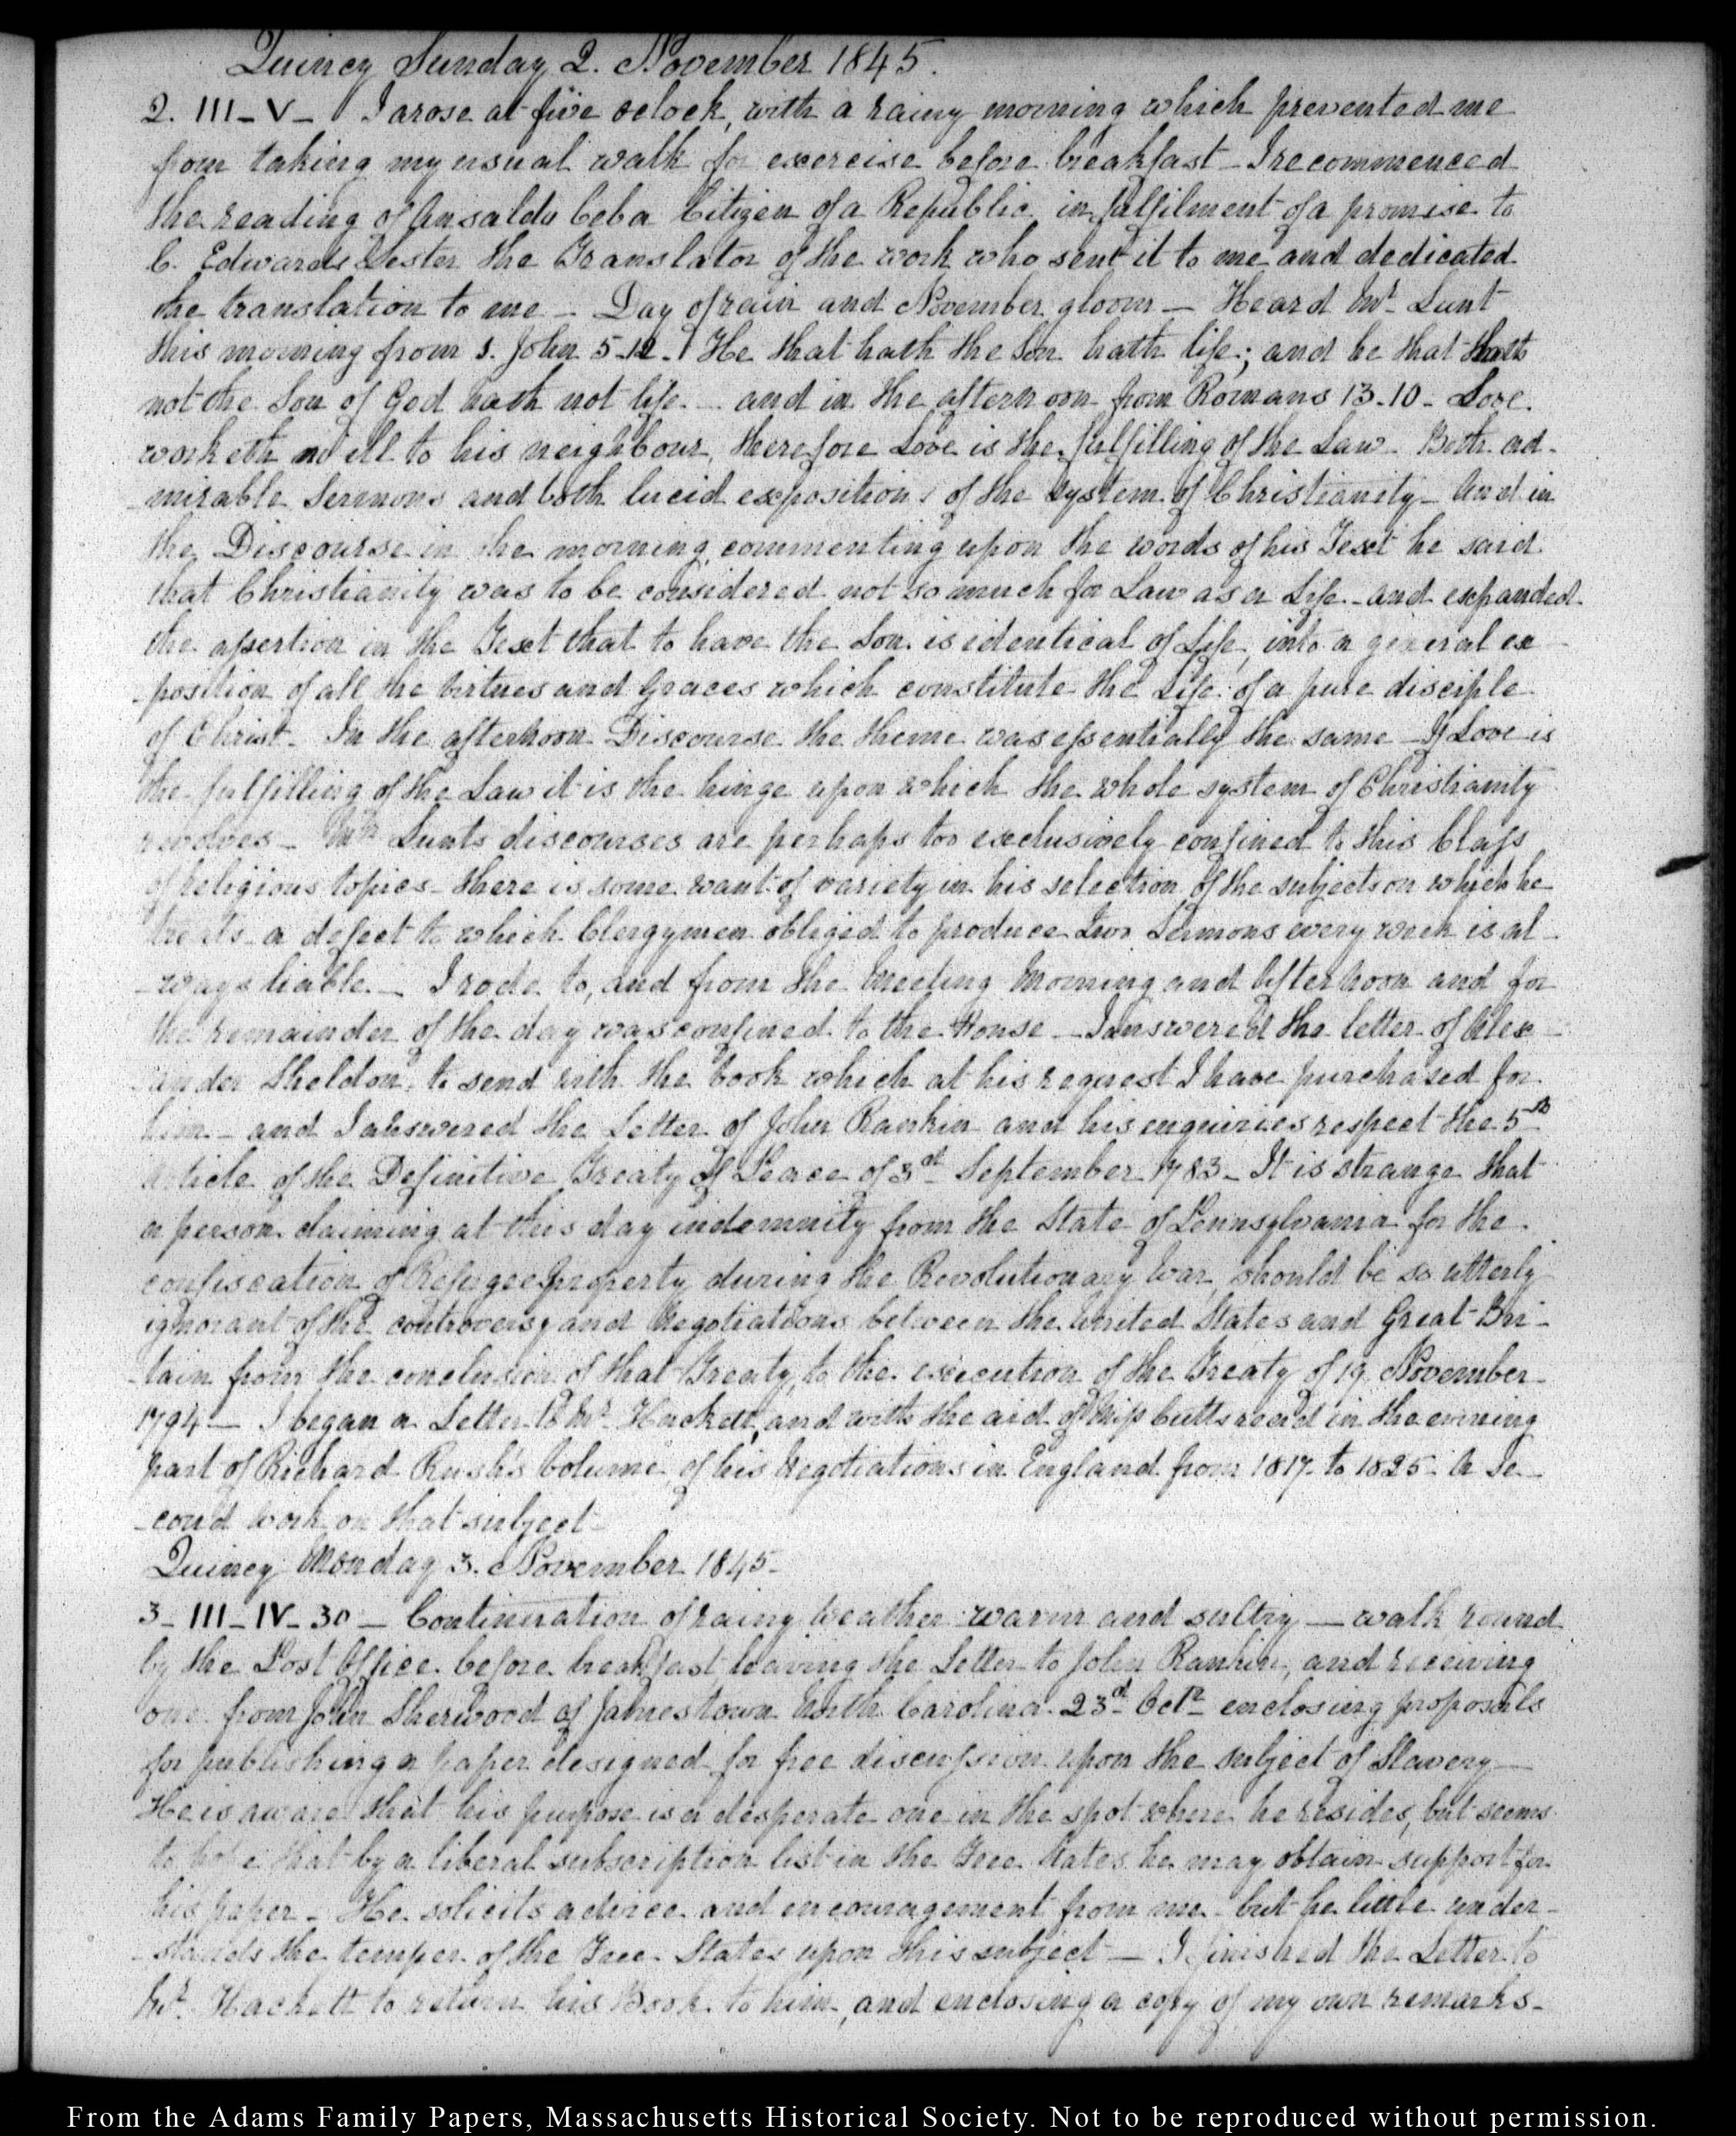 Quincy Sunday 2. November 1845.
2. III-V- I arose at five oclock, with a rainy morning which prevented me
from taking my usual walk for exercise before breakfast - I recommenced
the reading of Ansaldo Ceba Citizen of a Republic in fulfilment of a promise to
C. Edwards Lester the Translator of the work who sent it to me and dedicated
the translation to me - Day of rain and November gloom - Heard Mr. Lunt
this morning from 1. John 5-12. He that hath the Son hath life; and he that hath
not the Son of God hath not life. - and in the afternoon from Romans 13.10 - Love
worketh no ill to his neighbour, therefore Love is the fulfilling of the Law - Both ad-
-mirable Sermons and both lucid expositions of the system of Christianity - And in
the Discourse in the morning commenting upon the words of his Text he said
that Christianity was to be considered not so much for Law as a Life - and expanded
the assertion in the Text that to have the Son is identical of Life, into a general ex-
-position of all the virtues and Graces which constitute the Life of a pure disciple
of Christ - In the afternoon Discourse the theme was essentially the same - If Love is
the fulfilling of the Law it is the hinge upon which the whole system of Christianity
revolves - Mr. Lunts discourses are perhaps too exclusively confined to this Class
of religious topics - there is some want of variety in his selection of the subjects on which he
treats - a defect to which Clergymen obliged to produce two Sermons every week is al-
-ways liable - I rode to, and from the Meeting Morning and Afternoon and for
the remainder of the day was confined to the House - I answered the letter of Alex-
-ander Sheldon, to send with the book which at his request I have purchased for
him - and I answered the Letter of John Rankin and his enquiries respect the 5th
Article of the Definitive Treaty of Peace of 3d September 1783 - It is strange that
a person claiming at this day indemnity from the State of Pennsylvania for the
confiscation of Refugee property during the Revolutionary War, should be so utterly
ignorant of the controversy and Negotiations between the United States and Great-Bri-
-tain from the conclusion of that Treaty, to the execution of the Treaty of 19 November
1794 - I began a Letter to Mr. Hackett, and with the aid of Miss Cutts read in the evening
part of Richard Rush's Volume of his Negotiations in England from 1817 to 1825. A Se-
-cond work on that subject-
Quincy Monday 3. November 1845-
3- III-IV-30 - Continuation of rainy weather warm and sultry - walk round
by the Post Office before breakfast, leaving the Letter to John Rankin, and receiving
one from John Sherwood of Jamestown North Carolina 23d Octr enclosing proposals
for publishing a paper designed for free discussion upon the subject of Slavery -
He is aware that his purpose is a desperate one in the spot where he resides, but seems
to hope that by a liberal subscription list in the Free States he may obtain support for
his paper - He solicits advice and encouragement from me - but he little under-
-stands the temper of the Free States upon this subject - I finished the Letter to
Mr. Hackett to return his Book to him, and enclosing a copy of my own remarks-
From the Adams Family Papers, Massachusetts Historical Society. Not to be reproduced without permission.